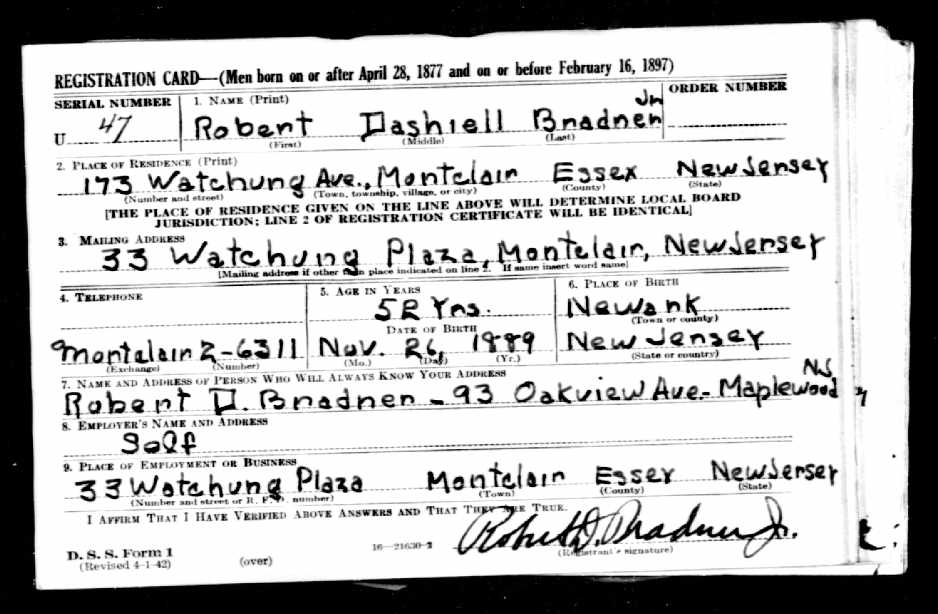 REGISTRATION CARD—(Men born on or after April 28, 1877 and on or before February 16, 1897)
SERIAL NUMBER 1. NAME (Print) ORDER NUMBER
U 47 Robert Dashiell Bradner Jr
(First) (Middle) (Last)
2. PLACE OF RESIDENCE (Print)
173 Watchung Ave., Montclair Essex New Jersey
(Number and street) (Town, township, village, or city) (County) (State)
[THE PLACE OF RESIDENCE GIVEN ON THE LINE ABOVE WILL DETERMINE LOCAL BOARD
JURISDICTION; LINE 2 OF REGISTRATION CERTIFICATE WILL BE IDENTICAL]
3. MAILING ADDRESS
33 Watchung Plaza, Montclair, New Jersey
[Mailing address if other than place indicated on line 2. If same insert word same]
4. TELEPHONE 5. AGE IN YEARS 6. PLACE OF BIRTH
52 Yrs. Newark
DATE OF BIRTH (Town or county)
Montclair 2-6311 Nov. 26, 1889 New Jersey
(Exchange) (Number) (Mo.) (Day) (Yr.) (State or country)
7. NAME AND ADDRESS OF PERSON WHO WILL ALWAYS KNOW YOUR ADDRESS
Robert D. Bradner - 93 Oakview Ave.- Maplewood N.J.
8. EMPLOYER'S NAME AND ADDRESS
Self
9. PLACE OF EMPLOYMENT OR BUSINESS
33 Watchung Plaza Montclair Essex New Jersey
(Number and street or R. F. D. number) (Town) (County) (State)
I AFFIRM THAT I HAVE VERIFIED ABOVE ANSWERS AND THAT THEY ARE TRUE.
Robert D. Bradner Jr.
D. S. S. Form 1 16—21630-2 (Registrant's signature)
(Revised 4-1-42) (over)